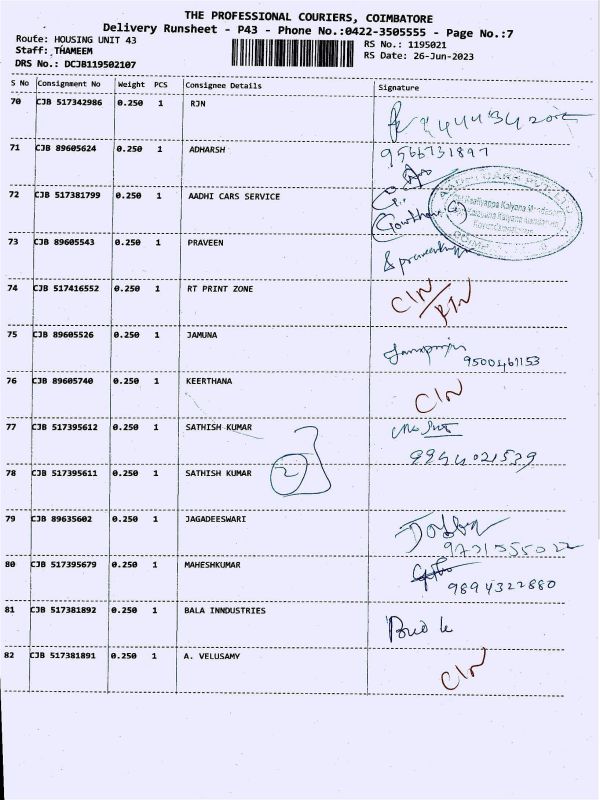 THE PROFESSIONAL COURIERS, COIMBATORE
Delivery Runsheet - P43 - Phone No.:0422-3505555 - Page No.:7
Route: HOUSING UNIT 43
RS No.: 1195021
Staff: THAMEEM
RS Date: 26-Jun-2023
DRS No.: DCJB119502107
S No Consignment No Weight PCS Consignee Details Signature
70 CJB 517342986 0.250 1 RJN
71 CJB 89605624 0.250 1 ADHARSH 9566731897
72 CJB 517381799 0.250 1 AADHI CARS SERVICE
Gowtham.G
73 CJB 89605543 0.250 1 PRAVEEN
74 CJB 517416552 0.250 1 RT PRINT ZONE CIN/RTN
75 CJB 89605526 0.250 1 JAMUNA
9500461153
76 CJB 89605740 0.250 1 KEERTHANA CIN
77 CJB 517395612 0.250 1 SATHISH KUMAR
9994021539
78 CJB 517395611 0.250 1 SATHISH KUMAR 2
79 CJB 89635602 0.250 1 JAGADEESWARI
80 CJB 517395679 0.250 1 MAHESHKUMAR
9894322880
81 CJB 517381892 0.250 1 BALA INNDUSTRIES
82 CJB 517381891 0.250 1 A. VELUSAMY CIN